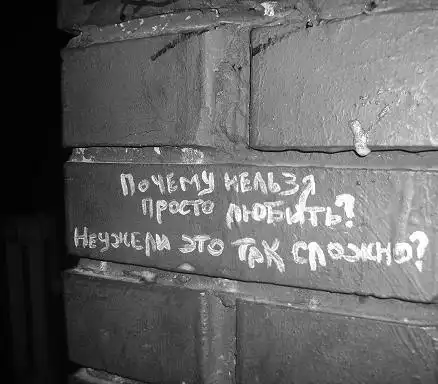 Почему нельзя
просто любить?
Неужели это так сложно?